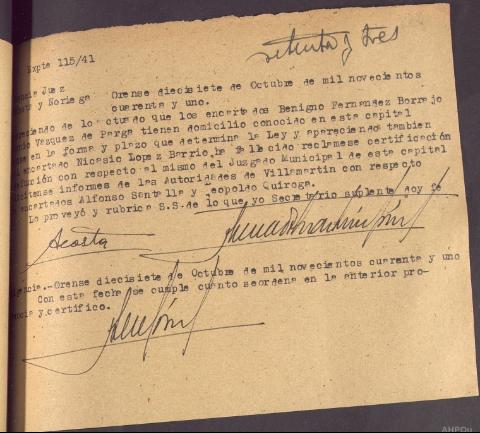 setenta y tres
Expte 115/41
Juez
y Noriega Orense diecisiete de Octubre de mil novecientos
cuarenta y uno.
de lo actuado que los encartados Benigno Fernandez Borrajo
Vazquez de Parga tienen domicilio conocido en esta capital
en la forma y plazo que determina la Ley y apareciendo tambien
encartado Nicasio Lopez Barrio, ha fallecido reclamese certificación
con respecto al mismo del Juzgado Municipal de esta capital
informes de las Autoridades de Villamartin con respecto
encartados Alfonso Santalla y Leopoldo Quiroga.
Lo proveyó y rubrica S.S. de lo que yo Secretario suplente doy fé
Acosta
.-Orense diecisiete de Octubre de mil novecientos cuarenta y uno
Con esta fecha se cumple cuanto seordena en la anterior pro-
y.certifico.
AHPOu